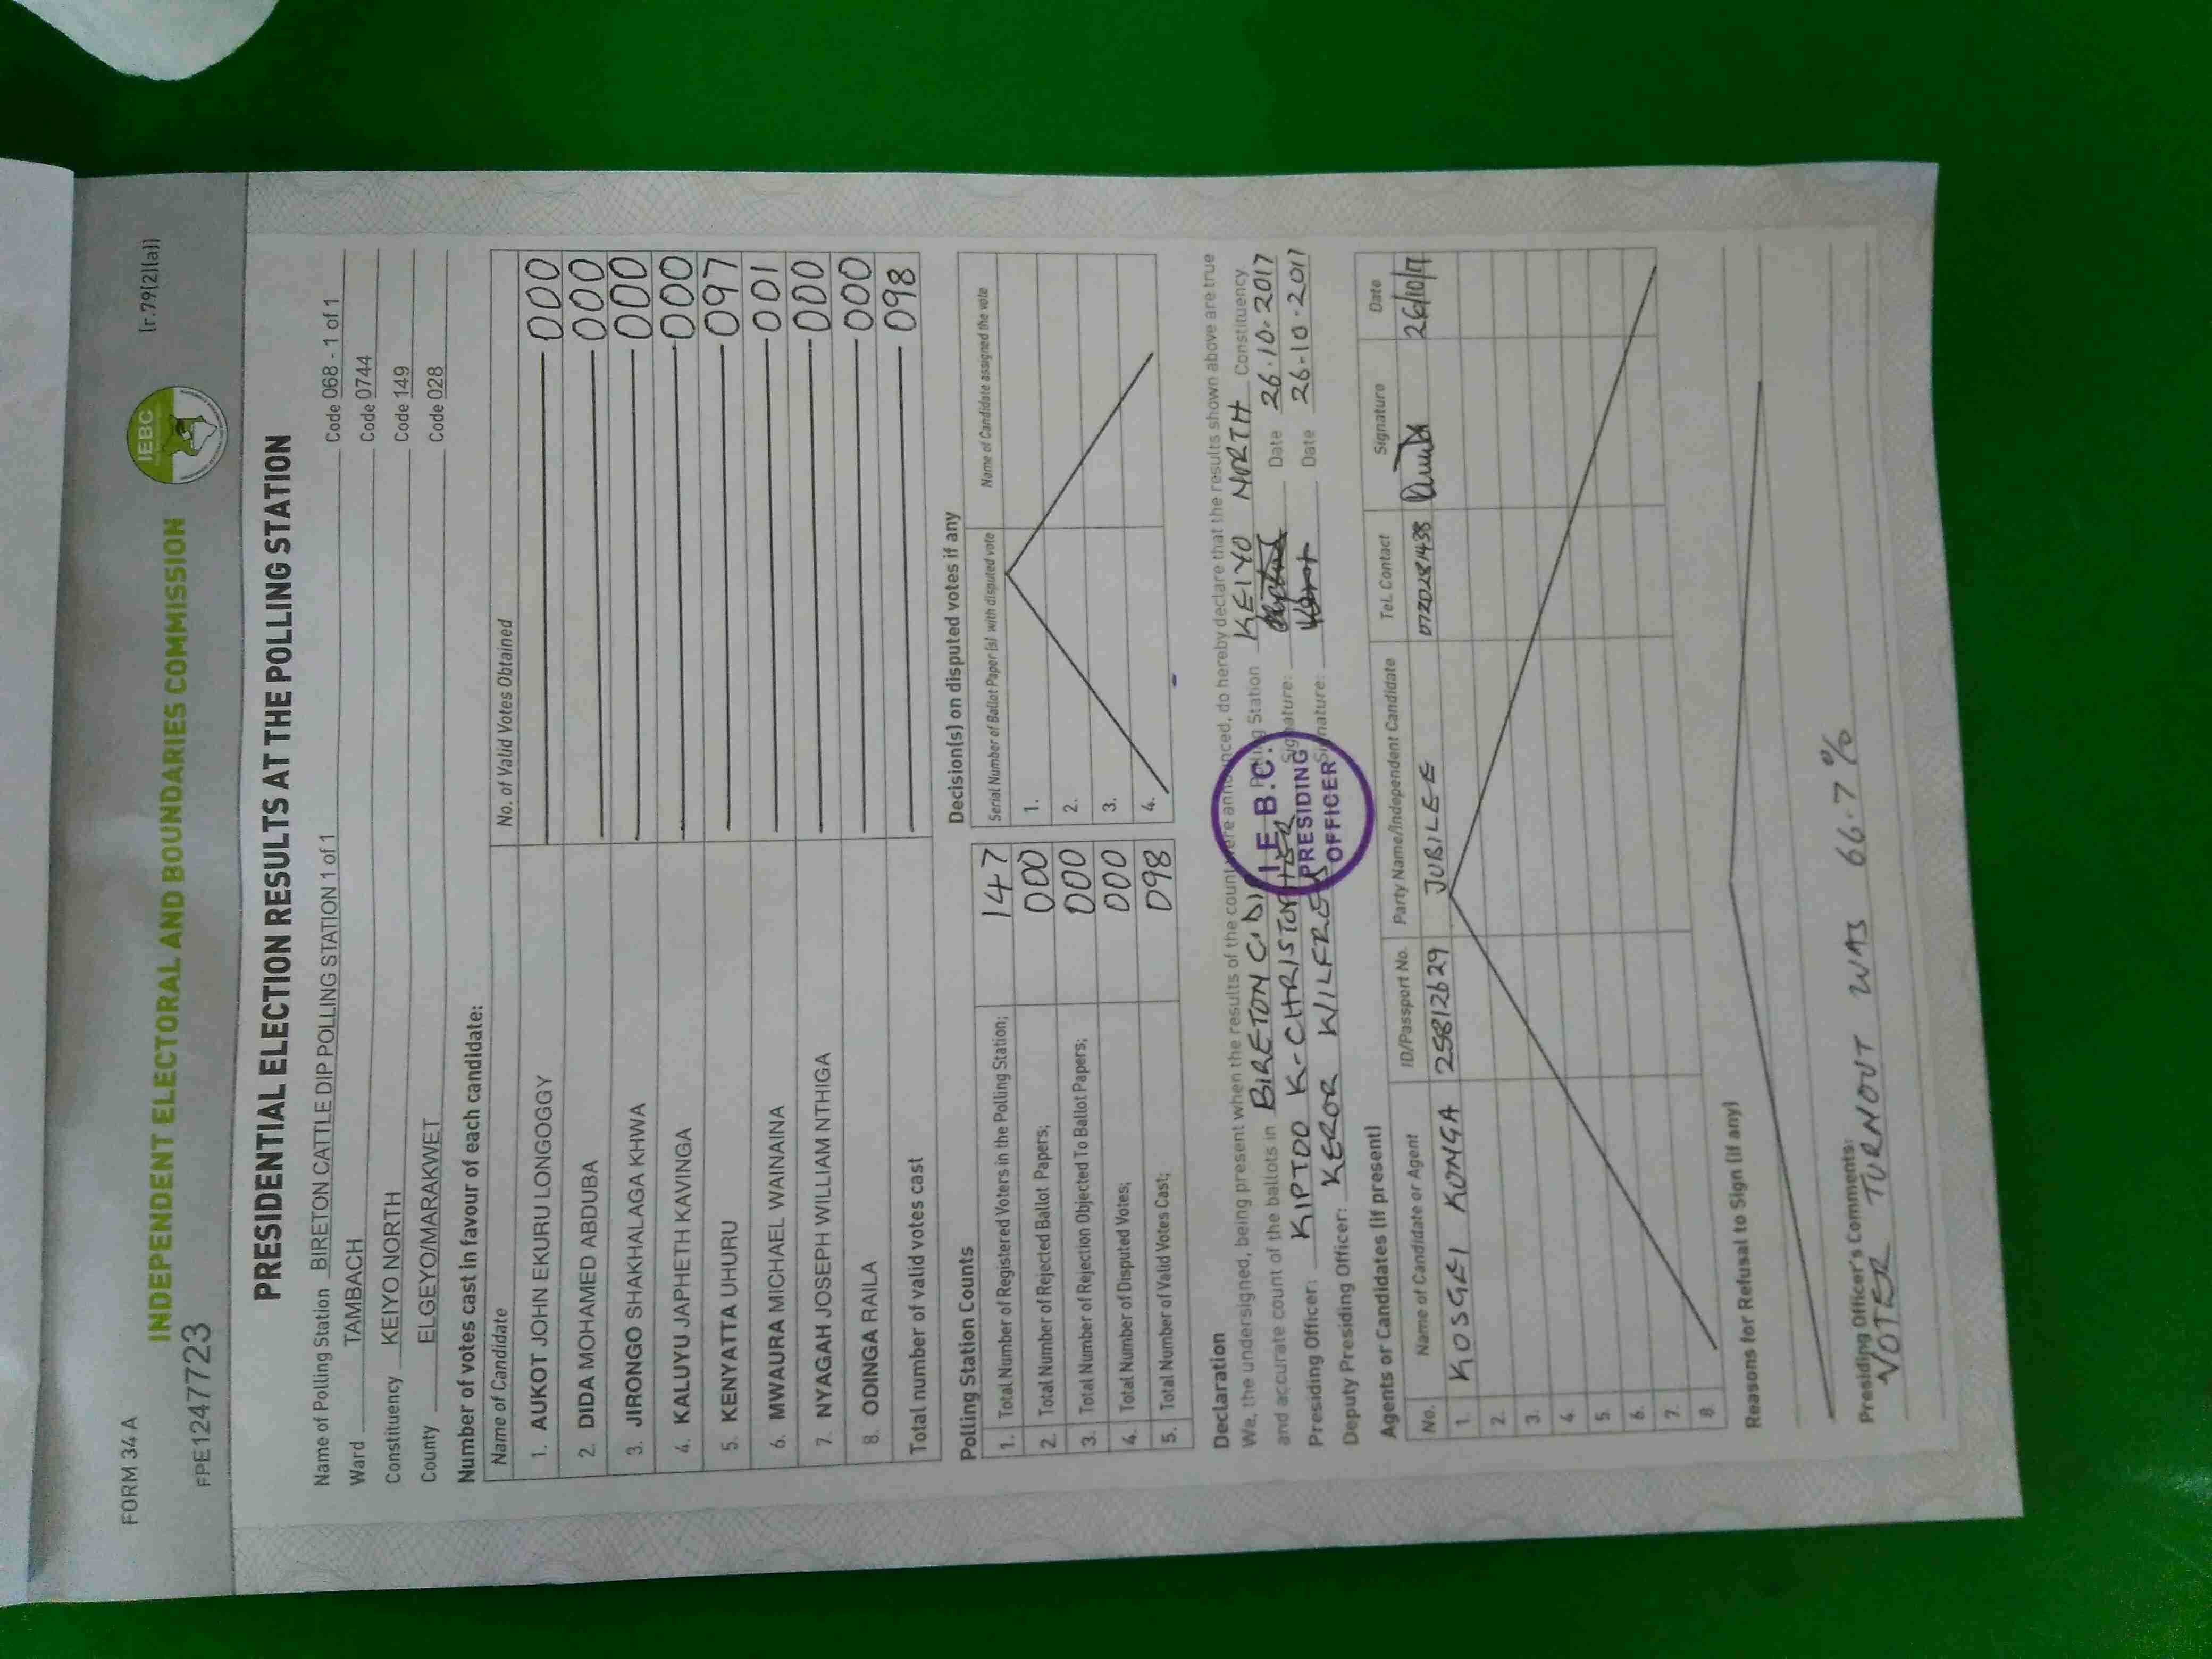 FORM 34 A
[r.79(2)(a)]
INDEPENDENT ELECTORAL AND BOUNDARIES COMMISSION
IEBC
FPE1247723
PRESIDENTIAL ELECTION RESULTS AT THE POLLING STATION
Name of Polling Station BIRETON CATTLE DIP POLLING STATION 1 of 1 Code 068 - 1 of 1
Ward TAMBACH Code 0744
Constituency KEIYO NORTH Code 149
County ELGEYO/MARAKWET Code 028
Number of votes cast in favour of each candidate:
Name of Candidate No. of Valid Votes Obtained
1. AUKOT JOHN EKURU LONGOGGY 000
2. DIDA MOHAMED ABDUBA 000
3. JIRONGO SHAKHALAGA KHWA 000
4. KALUYU JAPHETH KAVINGA 000
5. KENYATTA UHURU 097
6. MWAURA MICHAEL WAINAINA 001
7. NYAGAH JOSEPH WILLIAM NTHIGA 000
8. ODINGA RAILA 000
Total number of valid votes cast 098
Polling Station Counts
1. Total Number of Registered Voters in the Polling Station; 147
2. Total Number of Rejected Ballot Papers; 000
3. Total Number of Rejection Objected To Ballot Papers; 000
4. Total Number of Disputed Votes; 000
5. Total Number of Valid Votes Cast; 098
Decision(s) on disputed votes if any
Serial Number of Ballot Paper (s) with disputed vote Name of Candidate assigned the vote
1.
2.
3.
4.
Declaration
We, the undersigned, being present when the results of the count were announced, do hereby declare that the results shown above are true
and accurate count of the ballots in BIRETON C/DIP Polling Station KEIYO NORTH Constituency
Presiding Officer: KIPTOO K. CHRISTOPHER Signature: Date 26.10.2017
Deputy Presiding Officer: KEROR WILFRED Signature: Date 26-10-2017
I.E.B.C.
PRESIDING
OFFICER
Agents or Candidates (if present)
No. Name of Candidate or Agent ID/Passport No. Party Name/Independent Candidate Tel. Contact Signature Date
1. KOSGEI KONGA 25812629 JUBILEE 0720281438 26/10/17
2.
3.
4.
5.
6.
7.
8.
Reasons for Refusal to Sign (if any)
Presiding Officer's Comments:
VOTER TURNOUT WAS 66.7%